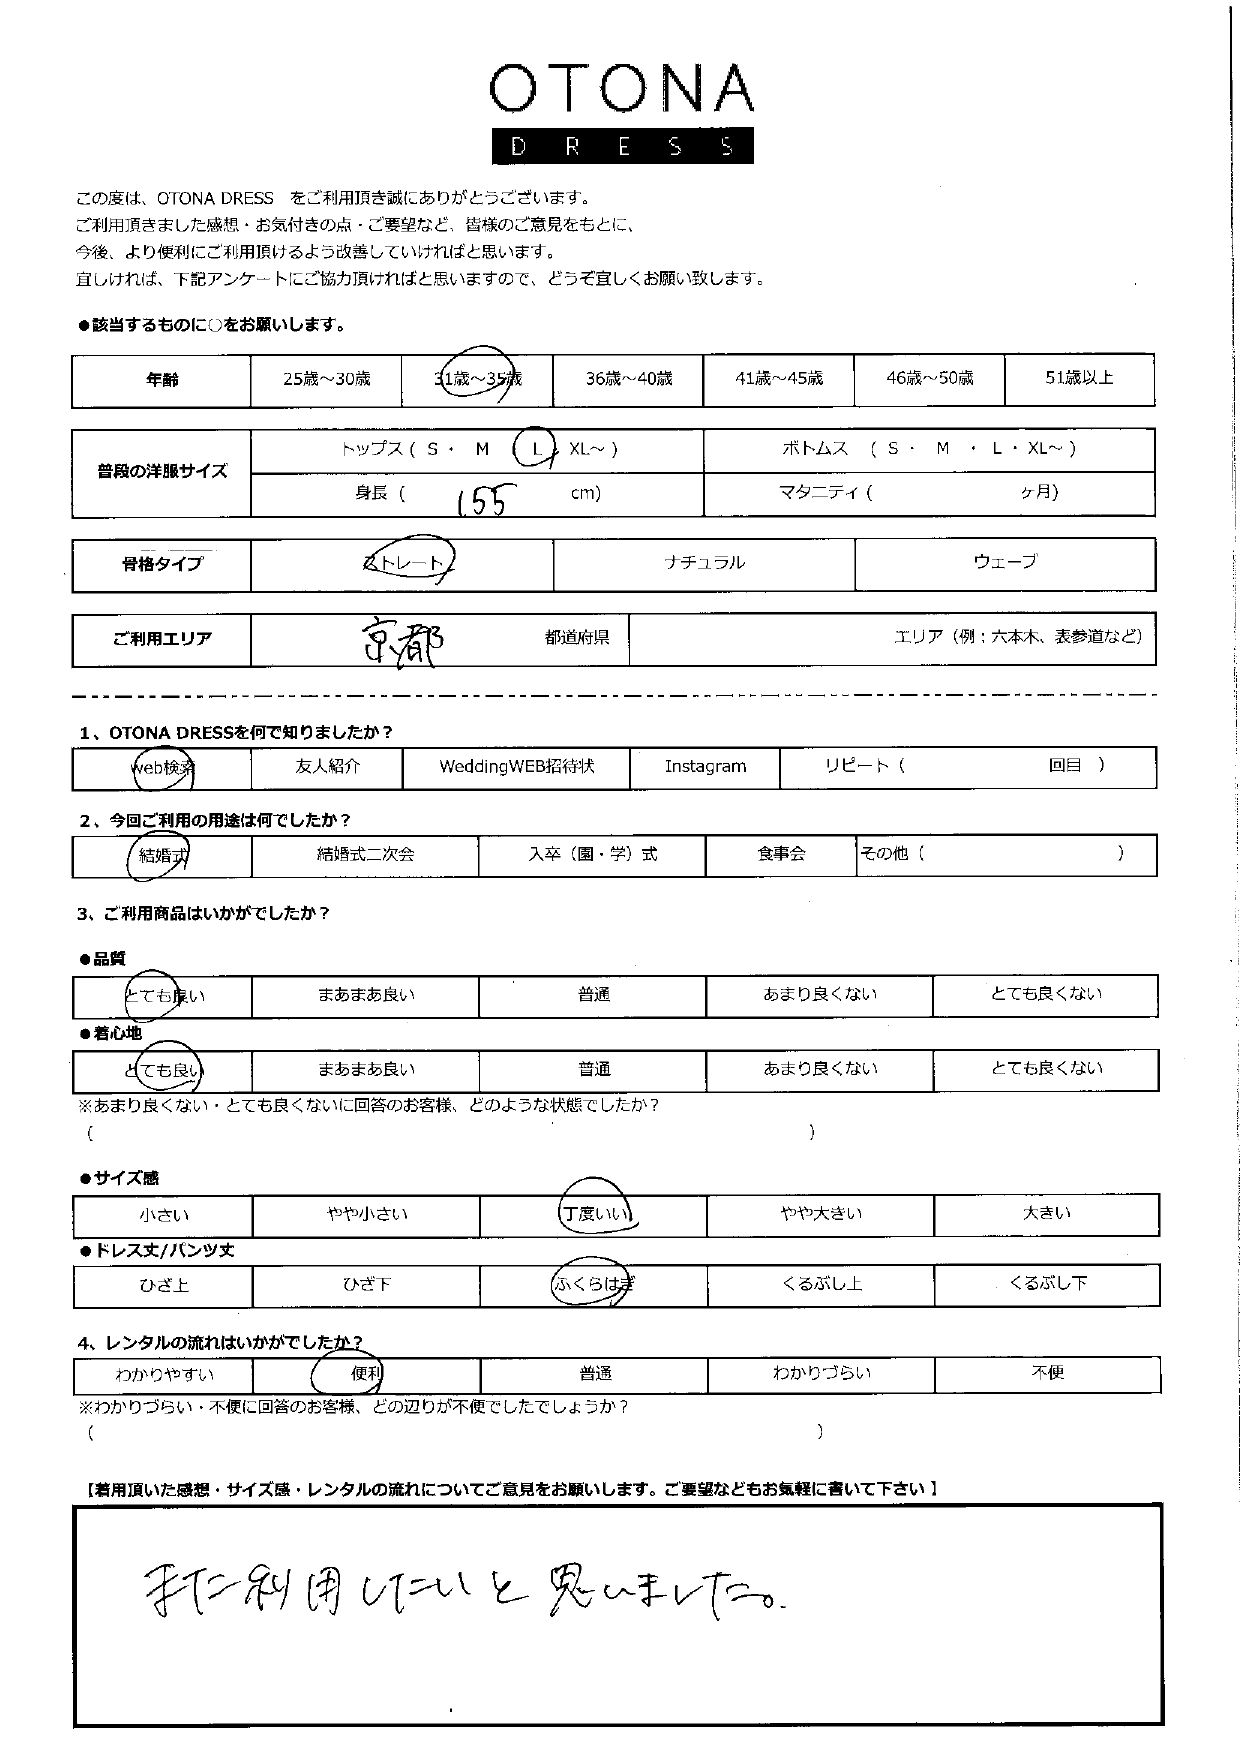 OTONA
DRESS
この度は、OTONA DRESS をご利用頂き誠にありがとうございます。
ご利用頂きました感想・お気付きの点・ご要望など、皆様のご意見をもとに、
今後、より便利にご利用頂けるよう改善していければと思います。
宜しければ、下記アンケートにご協力頂ければと思いますので、どうぞ宜しくお願い致します。
●該当するものに○をお願いします。
年齢 25歳～30歳 31歳～35歳 36歳～40歳 41歳～45歳 46歳～50歳 51歳以上
普段の洋服サイズ トップス ( S ・ M L XL～ ) ボトムス ( S ・ M ・ L ・ XL～ )
身長 ( 155 cm) マタニティ ( ヶ月)
骨格タイプ ストレート ナチュラル ウェーブ
ご利用エリア 京都 都道府県 エリア（例：六本木、表参道など）
1、OTONA DRESSを何で知りましたか？
web検索 友人紹介 WeddingWEB招待状 Instagram リピート（ 回目 ）
2、今回ご利用の用途は何でしたか？
結婚式 結婚式二次会 入卒（園・学）式 食事会 その他（ ）
3、ご利用商品はいかがでしたか？
●品質
とても良い まあまあ良い 普通 あまり良くない とても良くない
●着心地
とても良い まあまあ良い 普通 あまり良くない とても良くない
※あまり良くない・とても良くないに回答のお客様、どのような状態でしたか？
（ ）
●サイズ感
小さい やや小さい 丁度いい やや大きい 大きい
●ドレス丈/パンツ丈
ひざ上 ひざ下 ふくらはぎ くるぶし上 くるぶし下
4、レンタルの流れはいかがでしたか？
わかりやすい 便利 普通 わかりづらい 不便
※わかりづらい・不便に回答のお客様、どの辺りが不便でしたでしょうか？
（ ）
【着用頂いた感想・サイズ感・レンタルの流れについてご意見をお願いします。ご要望などもお気軽に書いて下さい】
また利用したいと思いました。